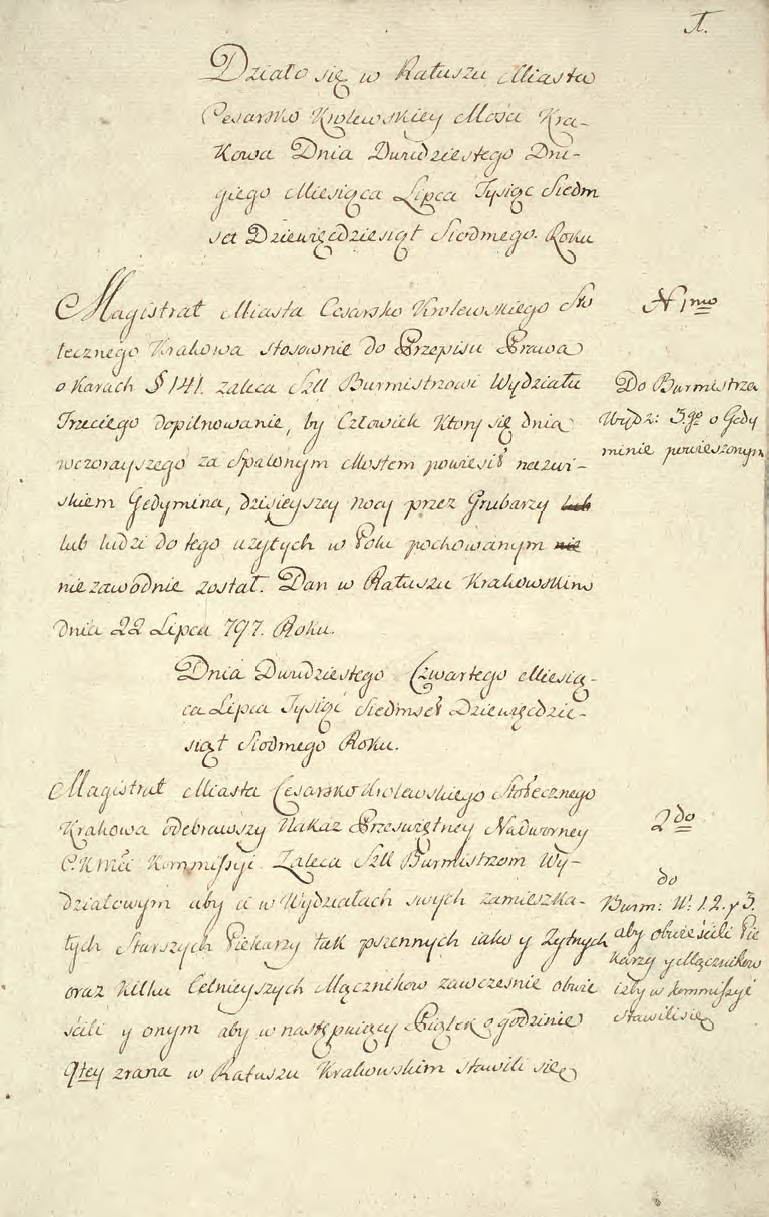 1.
Działo się w Ratuszu Miasta
Cesarsko Krolewskiey Mości Kra-
kowa Dnia Dwudziestego Dru-
giego Miesiąca Lipca Tysiąc Siedm
set Dziewięćdziesiąt Siodmego Roku
Magistrat Miasta Cesarsko Krolewskiego Sto
łecznego Krakowa stosownie do Przepisu Prawa
o karach § 141. zaleca Szll Burmistrzowi Wydziału
Trzeciego dopilnowanie, by Człowiek ktory się dnia
wczorayszego za Spalonym Mostem powiesił nazwi-
skiem Gedymina, dzisieyszey nocy przez Grubarzy lub
lub ludzi do tego użytych w Polu pochowanym nie
niezawodnie został. Dan w Ratuszu Krakowskim
dnia 22 Lipca 797. Roku.
N 1mo
Do Burmistrza
Wydz: 3.go o Gedy
minie powieszonym
Dnia Dwudziestego Czwartego Miesią-
ca Lipca Tysiąc Siedmset Dziewięćdzie-
siąt Siodmego Roku.
Magistrat Miasta Cesarsko Krolewskiego Stołecznego
Krakowa odebrawszy Nakaz Przeświętney Nadworney
C. K. Mci Kommissyi. Zaleca Szll Burmistrzom Wy-
działowym aby a w Wydziałach swych zamieszka-
łych Starszych Piekarzy tak pszennych iako y Żytnych
oraz kilku Celnieyszych Mącznikow zawcześnie obwie
ścili y onym aby w następuiący Piątek o godzinie
9tey zrana w Ratuszu Krakowskim stawili się
2do
do
Burm: W: 1. 2. y 3.
aby obwieścili Pie
karzy y Mącznikow
iżby w Kommissyi
stawili się